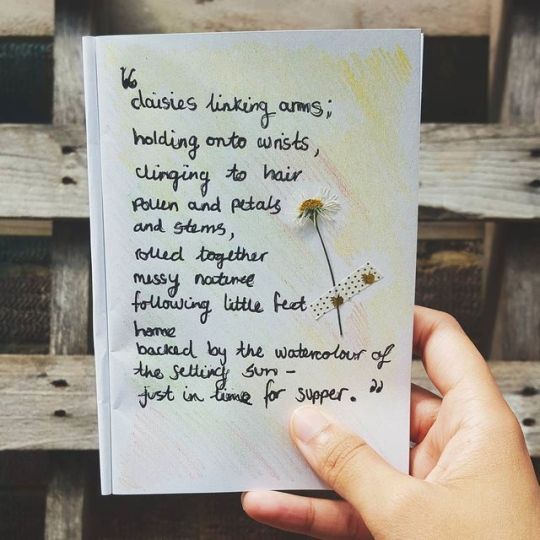 “
daisies linking arms;
holding onto wrists,
clinging to hair
pollen and petals
and stems,
rolled together
messy nature
following little feet
home
backed by the watercolour of
the setting sun –
just in time for supper. ”